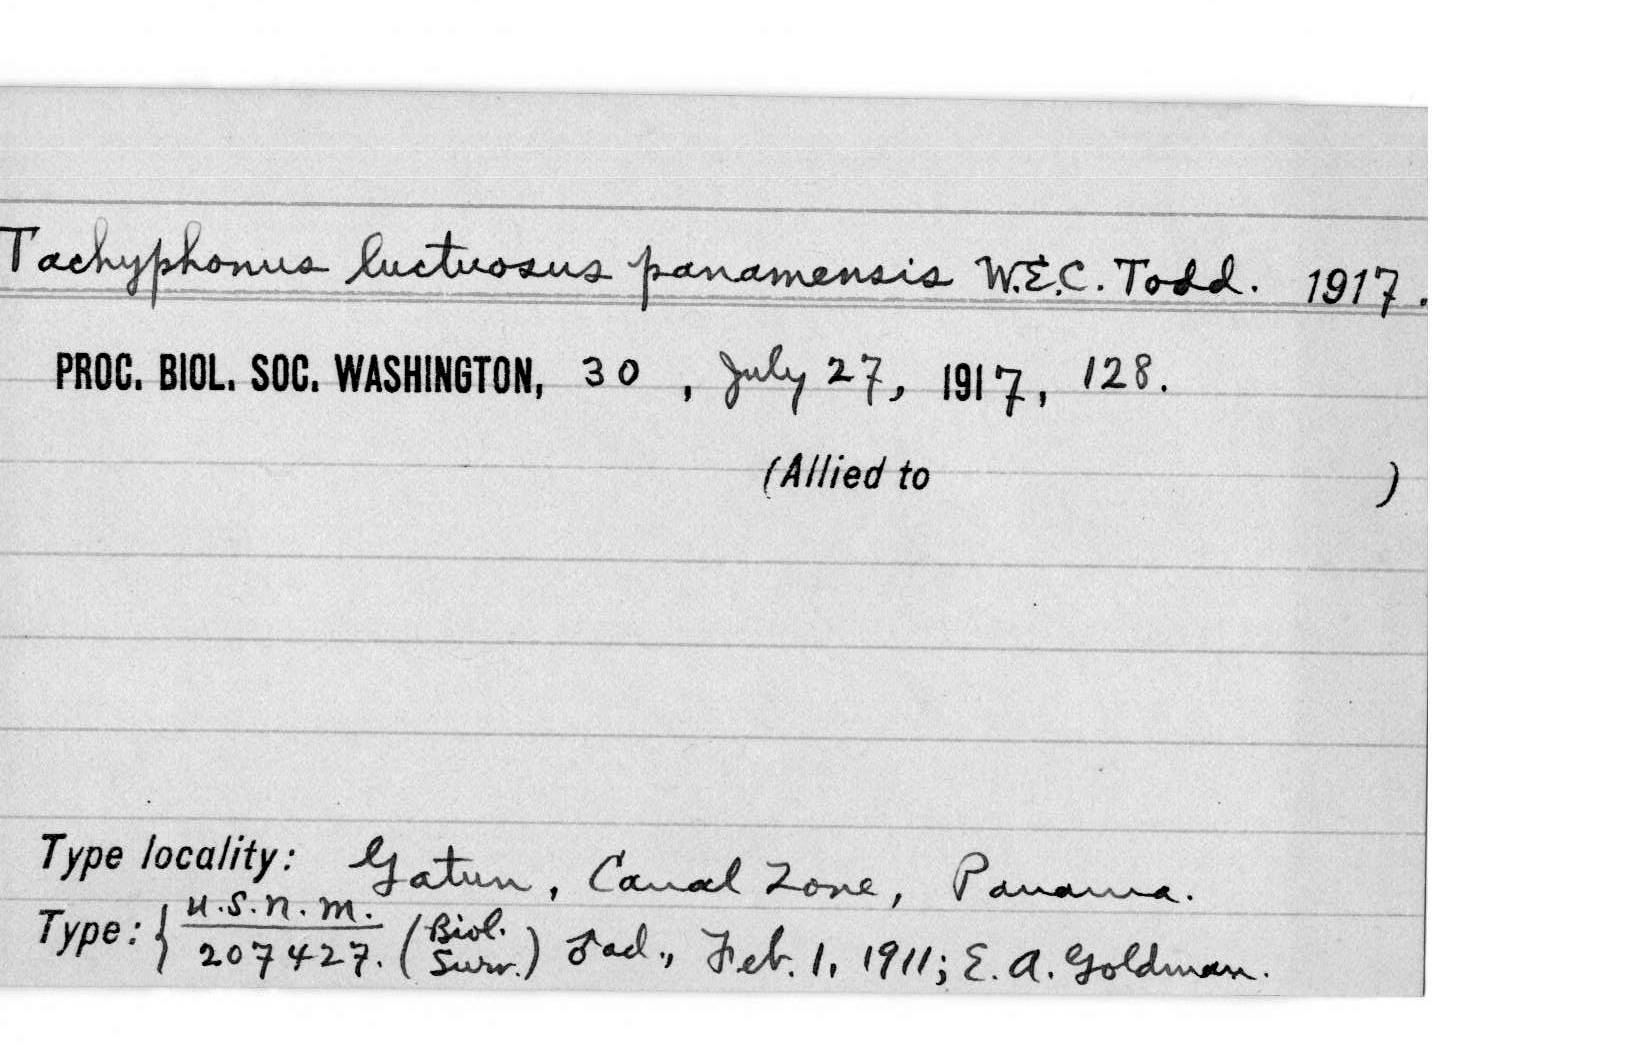 Tachyphonus luctuosus panamensis W.E.C. Todd. 1917.
PROC. BIOL. SOC. WASHINGTON, 30, July 27, 1917, 128.
(Allied to )
Type locality: Gatun, Canal Zone, Panama.
Type: { U.S.N.M. 207427. (Biol. Surv.) ♂ ad., Feb. 1, 1911; E. A. Goldman.